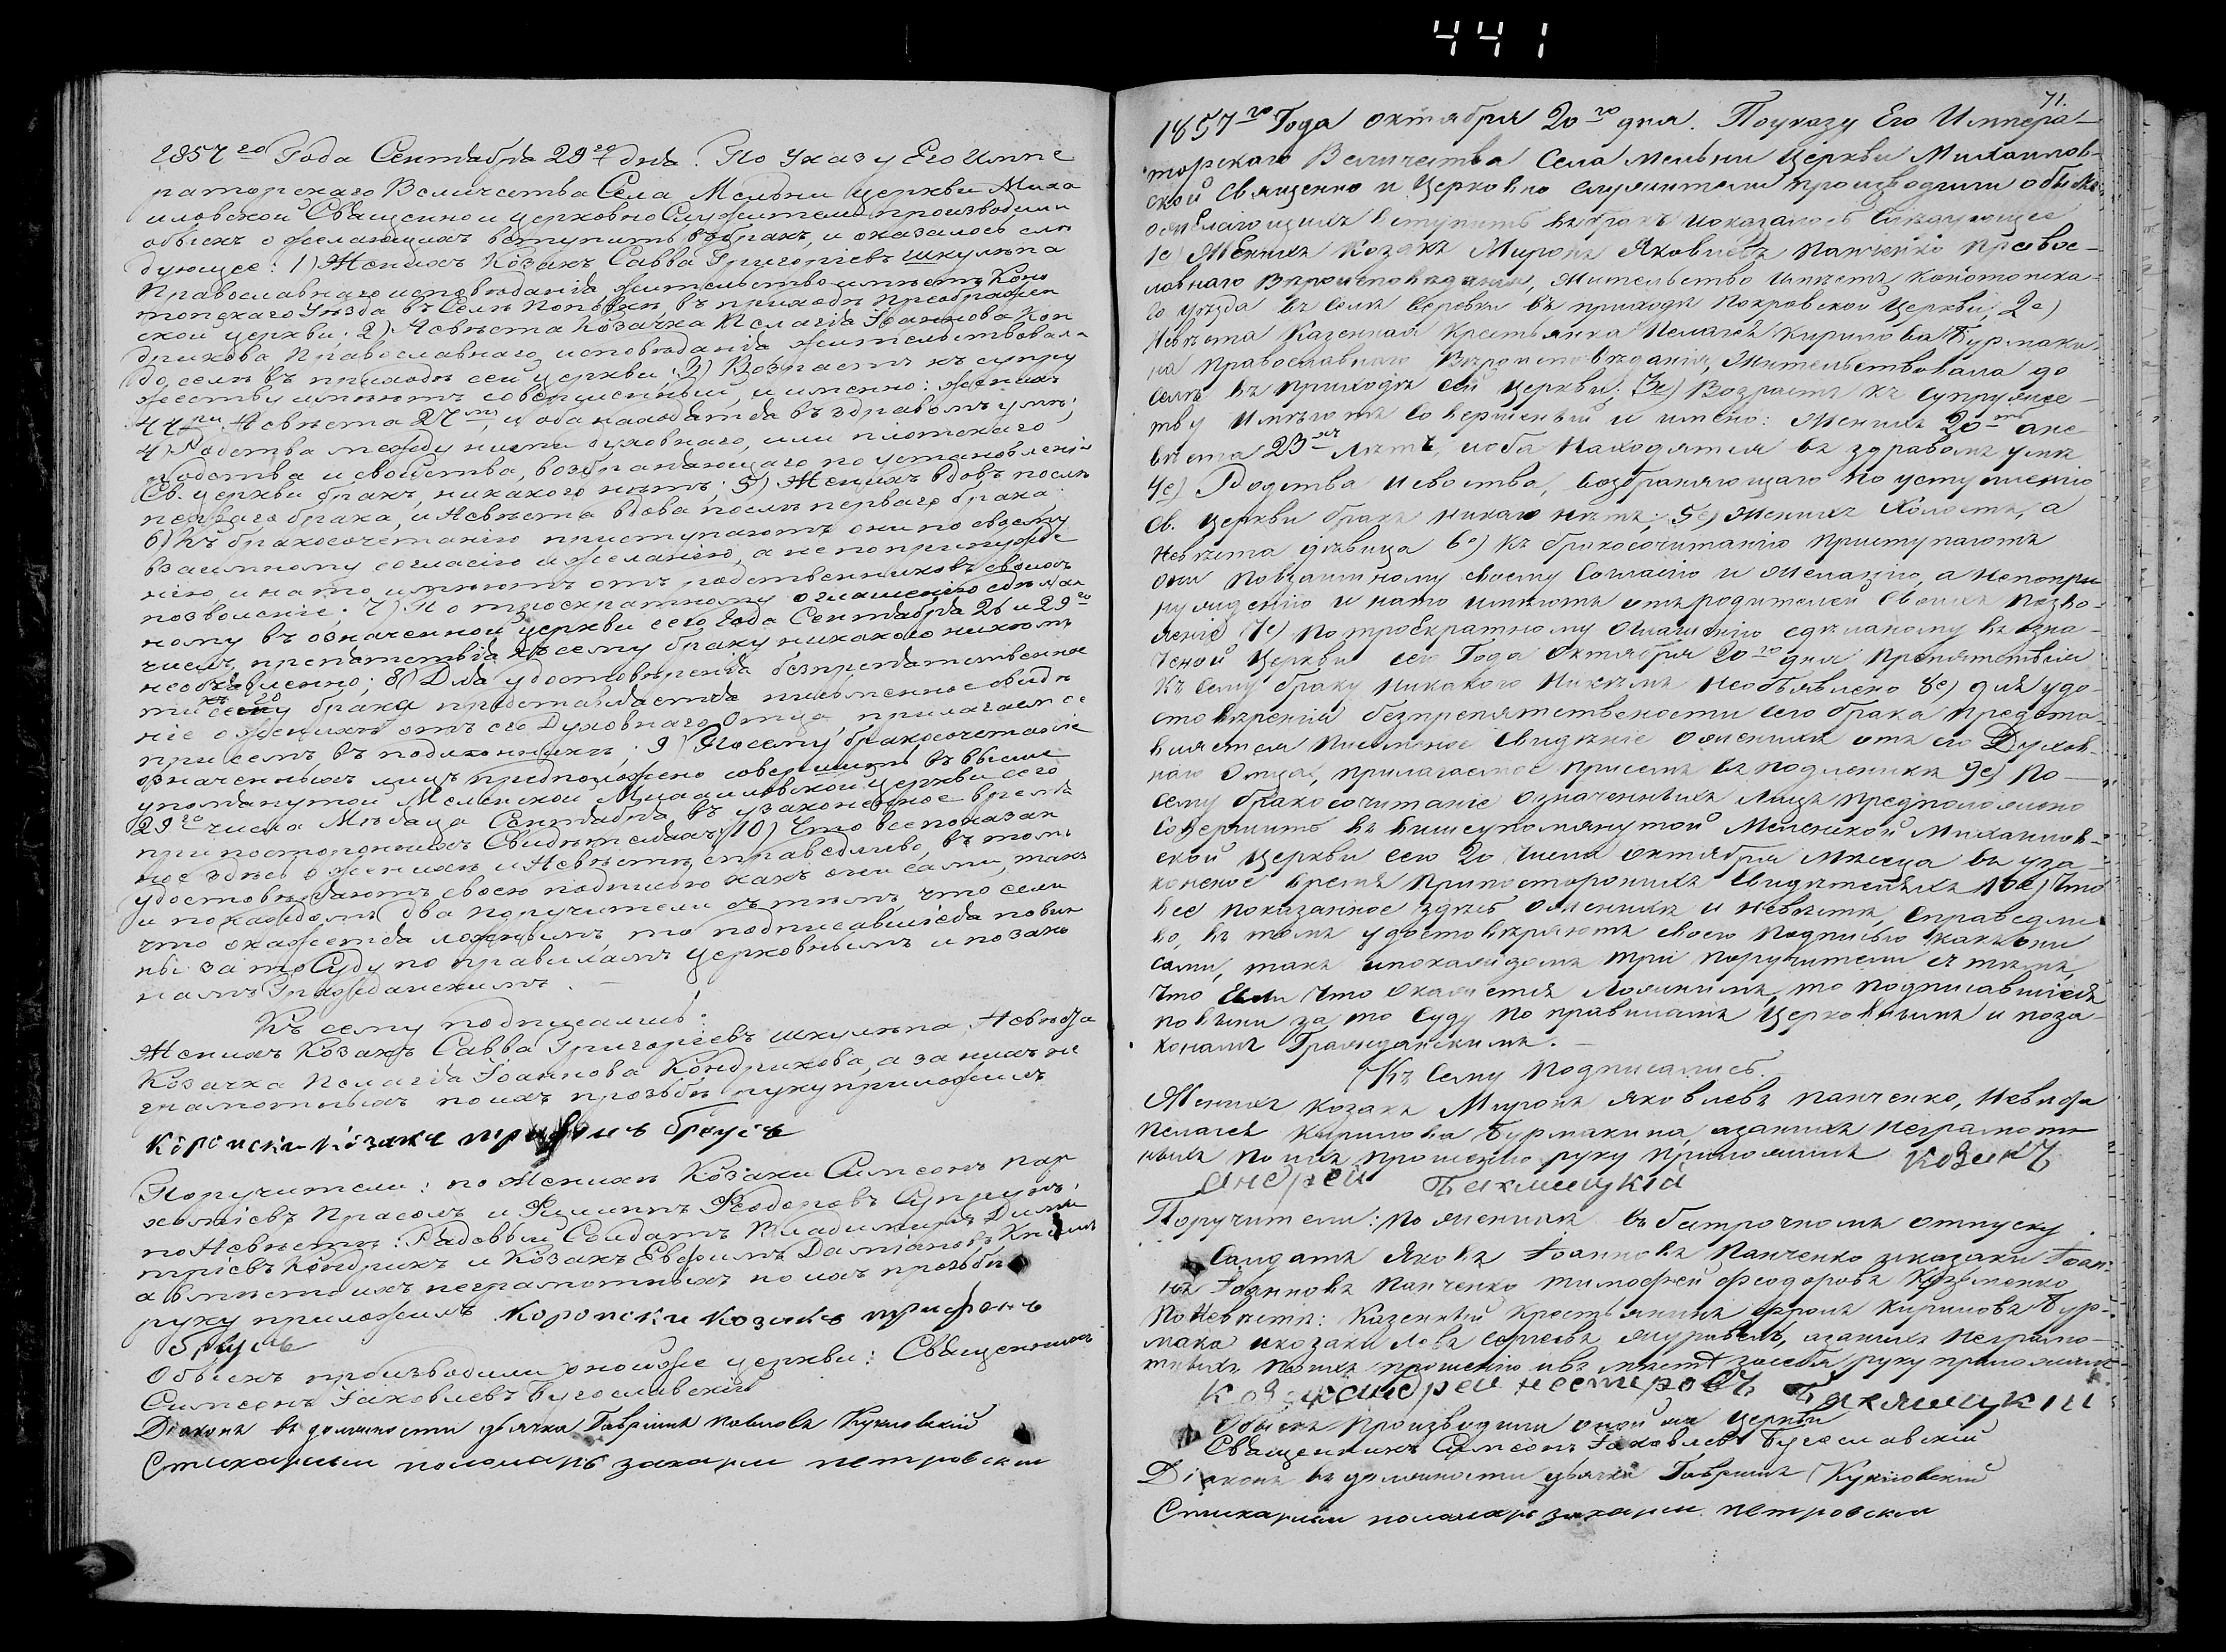 441
1857го Года Сентября 29го дня. По Указу Его Импе
раторскаго Величества Села Мельни церкви Миха
иловской Священно и церковно Служители производили
обыскъ о желающихъ вступить въ бракъ, и оказалось слѣ
дующее: 1) Женихъ Козакъ Савва Григоріевъ Шкулѣпа
Православнаго исповѣданія жительство имѣетъ Коно
топскаго Уѣзда въ Селѣ Поповкѣ въ приходѣ Преображен
ской церкви; 2) Невѣста Козачка Пелагія Іоаннова Кон
дрикова Православнаго исповѣданія жительствовала
до селѣ въ приходѣ сей церкви; 3) Возрастъ къ супру
жеству имѣютъ совершенный, и именно: женихъ
44ри Невѣста 27ми, и оба находятся въ здравомъ умѣ;
4) Родства между ними духовнаго, или плотскаго
родства и свойства, возбраняющаго по установленію
Св. церкви бракъ, никакого нѣтъ; 5) Женихъ вдовъ послѣ
перваго брака, и Невѣста вдова послѣ перваго брака
6) Къ бракосочетанію приступаютъ они по своему
взаимному согласію и желанію, а не по принужде
нію и на то имѣютъ отъ родственниковъ своихъ
позволеніе; 7) По троекратному оглашенію сдѣлан
ному въ означенной церкви сего Года Сентября 26 и 29го
числъ, препятствія къ сему браку никакого никѣмъ
необъявленно; 8) Для удостовѣренія безпрепятственно
сти сего брака представляется письменное свидѣ
ніе о женихѣ отъ его Духовнаго Отца, прилагаемое
при семъ въ подлинникѣ; 9) Посему бракосочетаніе
означенныхъ лицъ предположено совершить въ выше
упомянутой Меленской Михаиловской церкви сего
29го числа Мѣсяца Сентября въ узаконенное время
при постороннихъ Свидѣтеляхъ; 10) Что все показан
ное здѣсь о женихѣ и Невѣстѣ справедливо, въ томъ
удостовѣряютъ своею подписью какъ они сами, такъ
и по каждомъ два поручители съ тѣмъ, что если
что окажется ложнымъ, то подписавшіеся повин
ны за то Суду по правиламъ церковнымъ и по зако
намъ Гражданскимъ.
Къ сему подписались:
Женихъ Козакъ Савва Григоріевъ Шкулѣпа, Невѣста
Козачка Пелагія Іоаннова Кондрикова, а за нихъ не
грамотныхъ по ихъ прозьбѣ руку приложилъ
Коропски козакъ трифонъ брусъ
Поручители: по Женихѣ Козаки Симеонъ Пар
хоміевъ Прасолъ и Филиппъ Феодоровъ Супрунъ,
по Невѣстѣ: Рядовый Солдатъ Владимиръ Дими
тріевъ Кондрикъ и Козакъ Евфимъ Даміановъ
а вмѣсто ихъ неграмотныхъ по ихъ прозьбѣ
руку приложилъ Коропски козакъ трифонъ
брусъ
Обыскъ производили оной же церкви: Священникъ
Симеонъ Іаковлевъ Бугославскій
Діаконъ въ должности дьячка Гавріилъ Павловъ Кукловскій
Стихарный пономарь захарій петровскій
71.
1857го Года октября 20го дня. По указу Его Импера-
торскаго Величества Села Мельни Церкви Михаилов-
ской Священно и Церковно служители производили обыскъ
о желающихъ вступить въ бракъ и оказалось Слѣдующее
1е) Женихъ Козакъ Миронъ Яковлевъ Панченко Правос-
лавнаго Вѣроисповеданія, Жительство имѣетъ Конотопска-
го уѣзда въ селѣ въ приходѣ Покровской Церкви; 2е)
Невѣста Казенная Крестьянка Пелагея Кирилова Бурмаки-
на Православнаго Вѣроисповѣданія, Жительствовала до
селѣ въ приходѣ сей Церкви; 3е) Возрастъ къ супружес-
тву имѣютъ совершеный и имено: Женихъ 20ть а не-
вѣста 23хъ лѣтъ, и оба находятся въ здравомъ умѣ
4е) Родства и своства, возбраняющаго по уступленію
Св. Церкви бракъ никаго нѣтъ; 5е) Женихъ Холостъ, а
Невѣста дѣвица 6е) къ бракосочитанію приступаютъ
они по взаимному своему согласію и желанію, а непопри
нуждению и на то имѣютъ отъ родителей своихъ позво-
леніе 7е) по троекратному Оглашенію сдѣланому въ озна-
ченой Церкви сего Года Октября 20го дня Препятствія
Къ Сему браку никакого никѣмъ необъявлено 8е) для удо-
стовѣренія безпрепятствености сего брака предста-
вляется писменое Свидѣніе о женихѣ отъ его Духов-
наго Отца, прилагаемое присемъ въ подленикѣ 9е) По-
сему бракосочитаніе означенныхъ лицъ предположено
Совершить въ вишеупомянутой Меленской Михаилов-
ской Церкви сего 20 числа октября Мѣсяца въ уза-
коненое время припосторонихъ Свидѣтеляхъ 10е) Что
все показанное здѣсь о женихѣ и невѣстѣ, справедли-
во, въ томъ удостовѣряютъ своею подписью какъ они
сами, такъ и по каждомъ три поручители съ тѣмъ,
Что Если Что окажется Ложнимъ, то подписавшіеся
повины за то Суду по правиламъ Церковнымъ и поза-
конамъ Гражданскимъ.
Къ Сему подписались.
Женихъ козакъ Миронъ Яковлевъ Панченко, Невѣста
Пелагея Кирилова Бурмакина, а за нихъ неграмот-
ныхъ по ихъ прошенію руку приложилъ Козакъ
Андрей Бахмацкій
Поручители: по женихѣ въ безсрочномъ отпуску
Солдатъ Яковъ Іоанновъ Панченко и казаки Іоан-
нъ Іоанновъ Панченко тимофей феодоровъ Кузьменко
По Невѣсте: Казенный Крестьянинъ фролъ Кириловъ Бур-
мака и козакъ Левъ Сергѣевъ журавель, а за нихъ неграмо-
тныхъ по ихъ прошенію и вмѣсто за себя руку приложилъ
Козакъ андрей нестировъ Бахмацкій
Обыскъ Производили оной же Церкви
Священникъ Симеонъ Іаковлевъ Бугославскій
Діаконъ въ должности дьячка Гавріилъ Кукловскій
Стихарный пономарь захарій петровскій